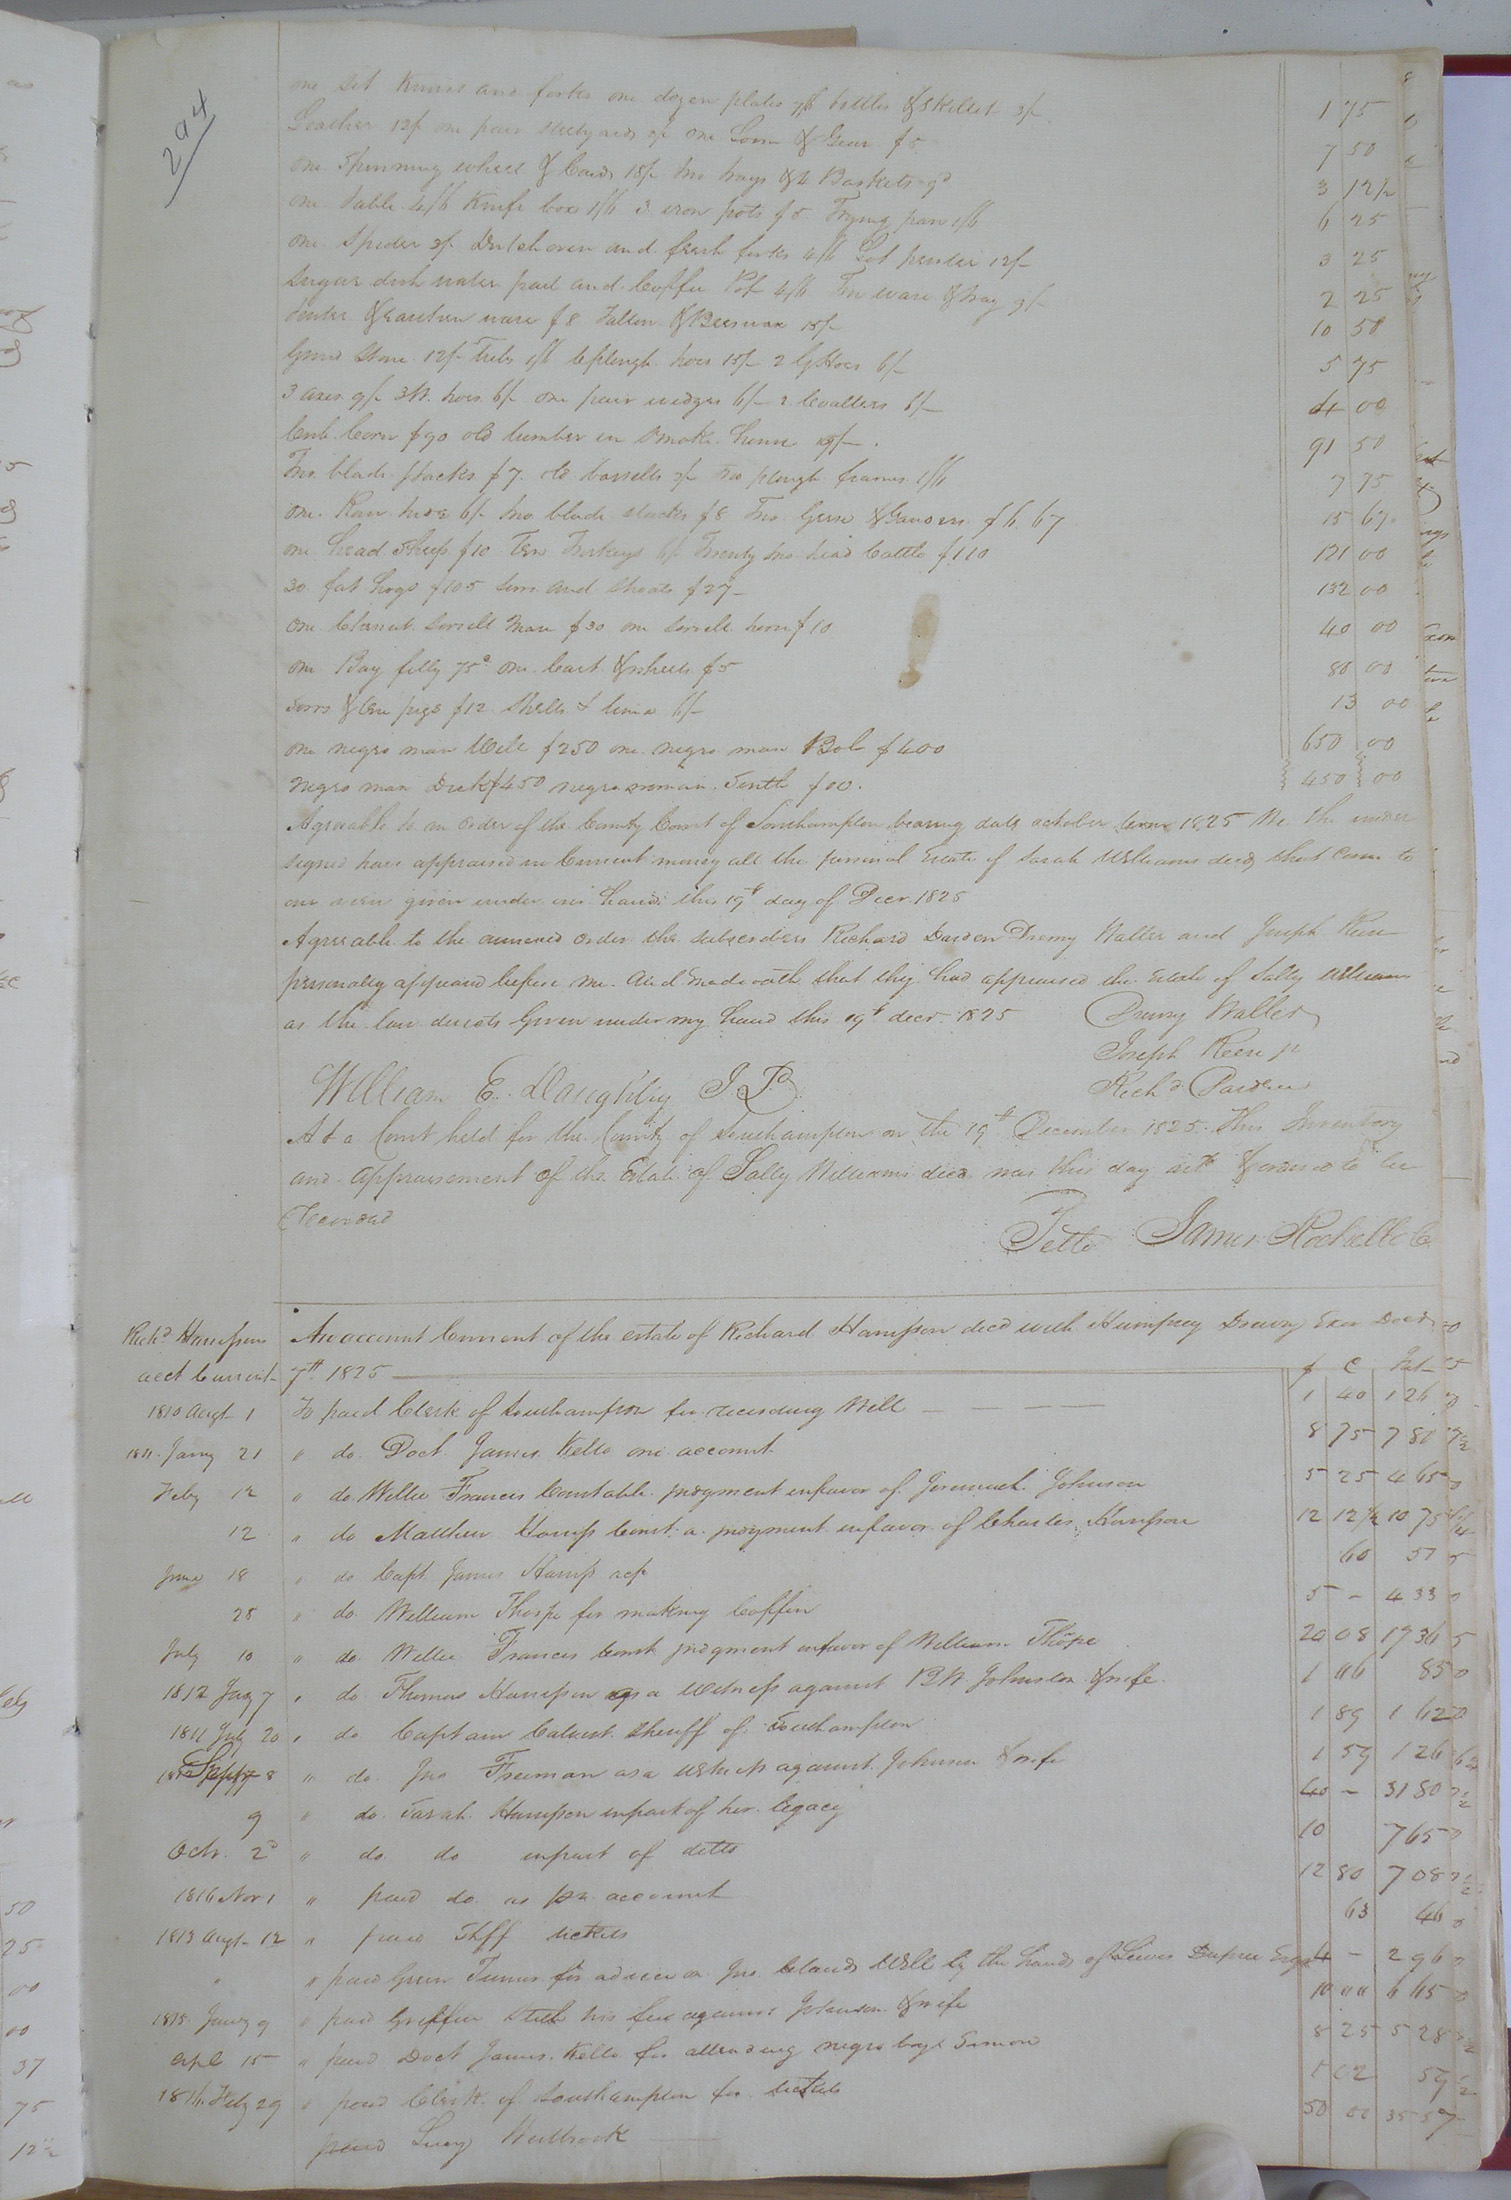 294
one set Knives and forks one dozen plates 7/6 bottles & Skillet 3/- 1 75
Leather 12/ one pair steelyards 3/- one Loom & Gear $5 7 50
one Spinning wheel & Cards 18/- two trays & 2 Baskets 9d 3 12½
one table 4/6 Knife box 1/6 3 iron pots $5 Frying pan 1/6 6 25
one Spider 3/- Dutch oven and flesh forks 4/6 Lot pewter 12/- 3 25
Sugar dish water pail and Coffee Pot 4/6 Tin ware & tray 9/- 2 25
& Earthen ware $8 Tallow & Beeswax 15/- 10 50
Grind Stone 12/- Tubs 1/6 ploughs hoes 15/- 2 G Hoes 6/- 5 75
3 axes 9/- 3 W. hoes 6/- one pair wedges 6/- 2 6/- 4 00
Crib Corn $90 old lumber in Smoke house 9/- 91 50
Two blade stacks $7 old barrells 3/- two plough frames 1/6 7 75
one Raw hide 6/- two blade stacks $8 Two Geese & Ganders $6 67 15 67
one head Sheep $10 Ten Turkeys 6/ Twenty two head Cattle $110 121 00
30 fat hogs $105 Sows and Shoats $27 132 00
one Sorrell Mare $30 one Sorrell horse $10 40 00
one Bay filly 75 one Cart & wheels $5 80 00
Sows & ten pigs $12 Shells & lime 6/- 13 00
one negro man Will $250 one negro man Bob $400 650 00
negro man Dick $450 negro woman $00. 450 00
Agreeable to an order of the County Court of Southampton bearing date october term 1825 We the under
signed have appraised in Current money all the personal Estate of Sarah Williams decd that come to
our view given under our hands this 19th day of Decr 1825
Agreeable to the annexed order the subscribers Richard Darden Drewry Waller and Joseph Keen
personally appeard before me and made oath that they had appraised the Estate of Sally Williams
as the law directs Given under my hand this 19t decr 1825 Drewry Waller
Joseph Keen jr
William E. Doughtry J.P. Richd Darden
At a Court held for the County of Southampton on the 19th December 1825. This Inventory
and appraisement of the Estate of Sally Williams decd was this day retd & ordered to be
Recorded
Teste James Rochelle C
Richd Harrison An account Current of the estate of Richard Harrison decd with Humphrey Drewry Exor
acct Current 7th 1825 $ C Int
1810 Augt 1 To paid Clerk of Southampton for recording Will 1 40 1 26
1811 Jany 21 " do Doct. James Kello one account 8 75 7 80
Feby 12 " do Willie Francis Constable judgment infavor of Jeremiah Johnson 5 25 4 65
12 " do Matthew Const. a judgment infavor of Charles Harrison 12 12½ 10 75
June 18 " do Capt James 60 57
28 " do William Thorpe for making Coffin 5 - 4 33
July 10 " do Willie Francis Const judgment infavor of William Thope 20 08 17 36
1812 Jay 7 " do Thomas Harrison as a Witness against Johnson & wife 1 06 85
1811 July 20 " do Captain Calvert Sheriff of Southampton 1 89 1 62
Sept 8 " do Jno Freeman as a Witness against Johnson & wife 1 59 1 26
9 " do Sarah Harrison in part of her legacy 40 - 31 80
Octr 2d " do do in part of ditto 10 7 65
1816 Nov 1 " paid do as pr account 12 80 7 08
1813 Augt 12 " paid Shff tickets 63 46
" " paid Green Turner for advice on Jno Will by the hands of Lewis Dupree Esqr 4 - 2 96
1815 Jany 9 " paid Griffin Stith his fee against Johnson & wife 10 "" 6 65
Apl 15 " paid Doct James Kello for attending negro boy Simon 8 25 5 28
1816 Feby 29 " paid Clerk of Southampton for tickets 1 02 59
paid Lucy Westbrook 50 00 35 59